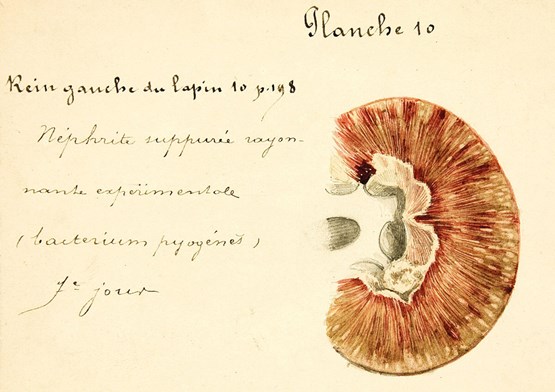 Planche 10
Rein gauche du lapin 10 p. 198
Néphrite suppurée rayon-
nante expérimentale
(bacterium pyogénés)
7e jour